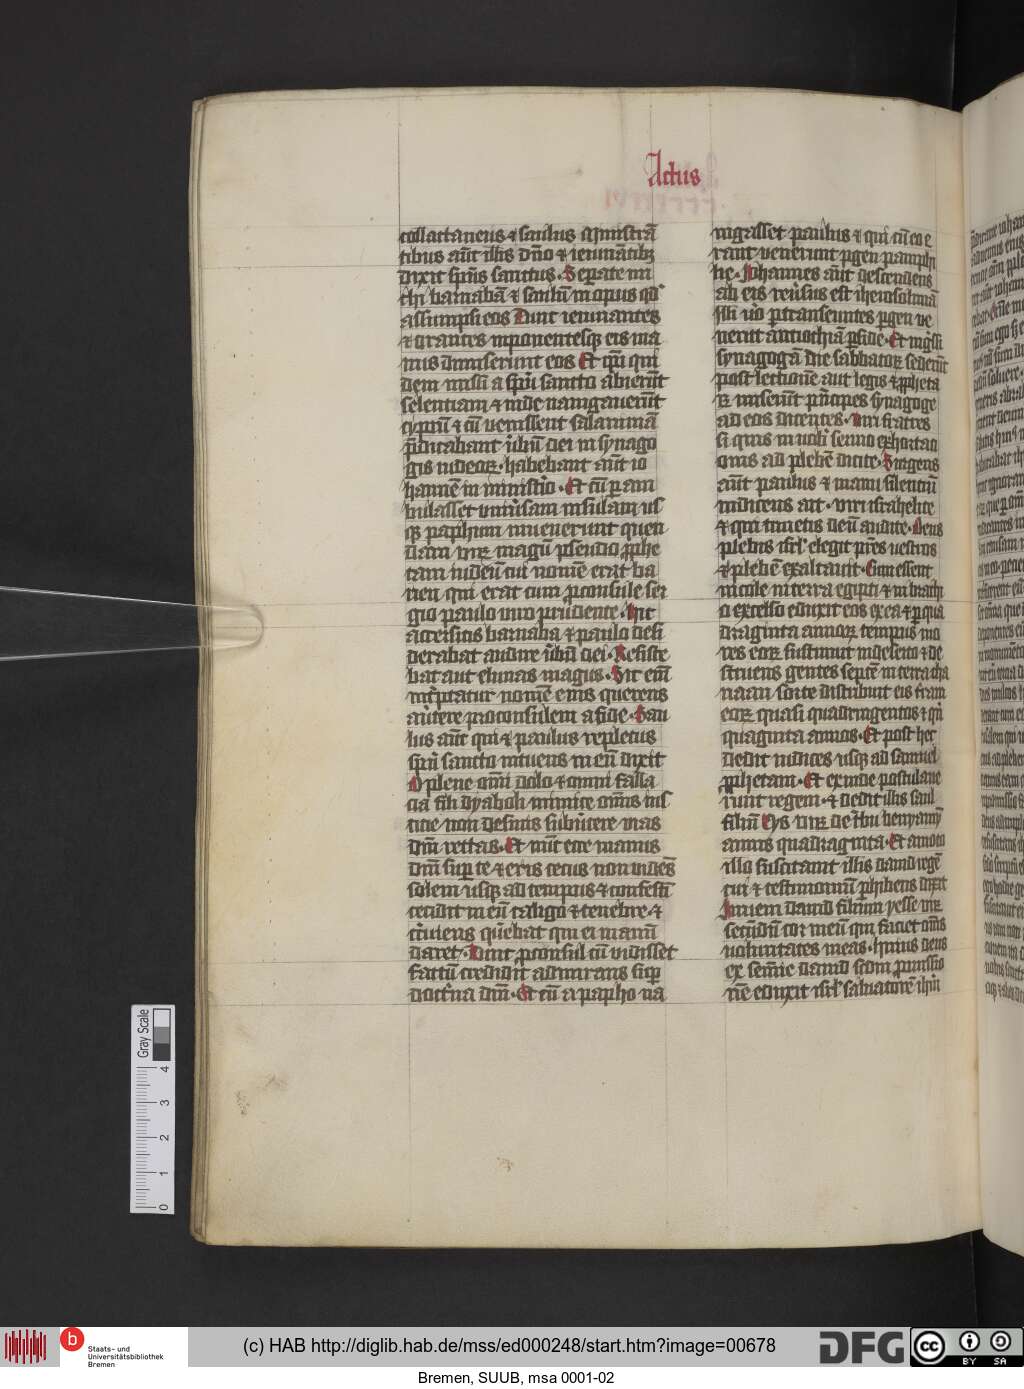 Actus
collactaneus ⁊ saulus Ministrā
tibus aūt illis dn̄o ⁊ ieiunātibꝫ
dixit sp̄us sanctus · Separate mi
chi barnabā ⁊ saulū in opus qd̓
assumpsi eos Tunc ieiunantes
⁊ orantes inponentesqꝫ eis ma
nus dimiserunt eos Et ip̄i qui
dem missi a sp̄u sancto abierūt
selentiam ⁊ inde nauigauerūt
cyprū ⁊ cū venissent salaminā
p̄dicabant v̓bū dei in synago
gis iudeoꝝ · habebant aūt io
hannē in ministio · Et cū peram
bulasset vniu̓sam insulam us
qꝫ paphum inuenerunt quen
dam virꝝ magū pseudo prophe
tam iudeū cui nomē erat ba
rieu qui erat cum proconsule ser
gio paulo viro prudente · hic
accersitis barnaba ⁊ paulo desi
derabat audire v̓bū dei · Resiste
bat aut elimas magus · Sic em̄
int̓ptatur nomē eius querens
au̓tere proconsulem a fide · Sau
lus aūt qui ⁊ paulus repletus
sp̄u sancto intuens in eū dixit
O plene om̄i dolo ⁊ omni falla
cia fili dyaboli inimice om̄is ius
ticie non desinis subu̓tere vias
dn̄i rectas · Et nūc ecce manus
dn̄i super te ⁊ eris cecus non vidēs
solem usqꝫ ad tempus ⁊ confestī
cecidit in eū caligo ⁊ tenebre · ⁊
circuiens querebat qui ei manū
daret · Tunc proconsul cū vidisset
factū credidit admirans super
doctrina dn̄i · Et cū a papho na
uigasset paulus ⁊ qui cū eo e
rant venerunt pergen pamphi
lie · Iohannes aūt descendens
ab eis reu̓sus est iherosolimā
Illi v̓o pertranseuntes pergen ve
nerūt antiochiā persidie · Et ing̓ssi
synagogā die sabbatoꝝ sederūt
post lectionē aut legis ⁊ propheta
ꝝ miserūt p̓ncipes synagoge
ad eos dicentes · Viri fratres
si quis in vob̄ sermo exhortaci
onis ad plebē dicite · Surgens
aūt paulus ⁊ manu silenciū
indicens ait · viri israhelite
⁊ qui timetis deū audite · Deus
plebis isrl̓ elegit pr̄es uestros
⁊ plebē exaltauit · Cum essent
incole in terra egipti ⁊ in brachi
o excelso eduxit eos ex ea ⁊ per qua
draginta annoꝝ tempus mo
res eoꝝ sustinuit in deserto ⁊ de
struens gentes septē in terra cha
naan sorte distribuit eis terram
eoꝝ quasi quadringentos ⁊ qui
quaginta annos · Et post hec
dedit iudices usqꝫ ad samuel
prophetam · Et exinde postulaue
runt regem · ⁊ dedit illis saul
filiū Cys virꝝ de tribu benyamī
annis quadraginta · Et amoto
illo suscitauit illis dauid regē
cui ⁊ testimoniū perhibens dixit
Inueni dauid filium yesse virꝝ
secūdū cor meū qui faciet om̄s
voluntates meas · huius deus
ex semīe dauid scdm promissio
nē eduxit isrl̓ saluatorē ih̄m
Gray Scale
0 1 2 3 4
Staats- und
Universitätsbibliothek
Bremen
(c) HAB http://diglib.hab.de/mss/ed000248/start.htm?image=00678
DFG
cc
BY SA
Bremen, SUUB, msa 0001-02